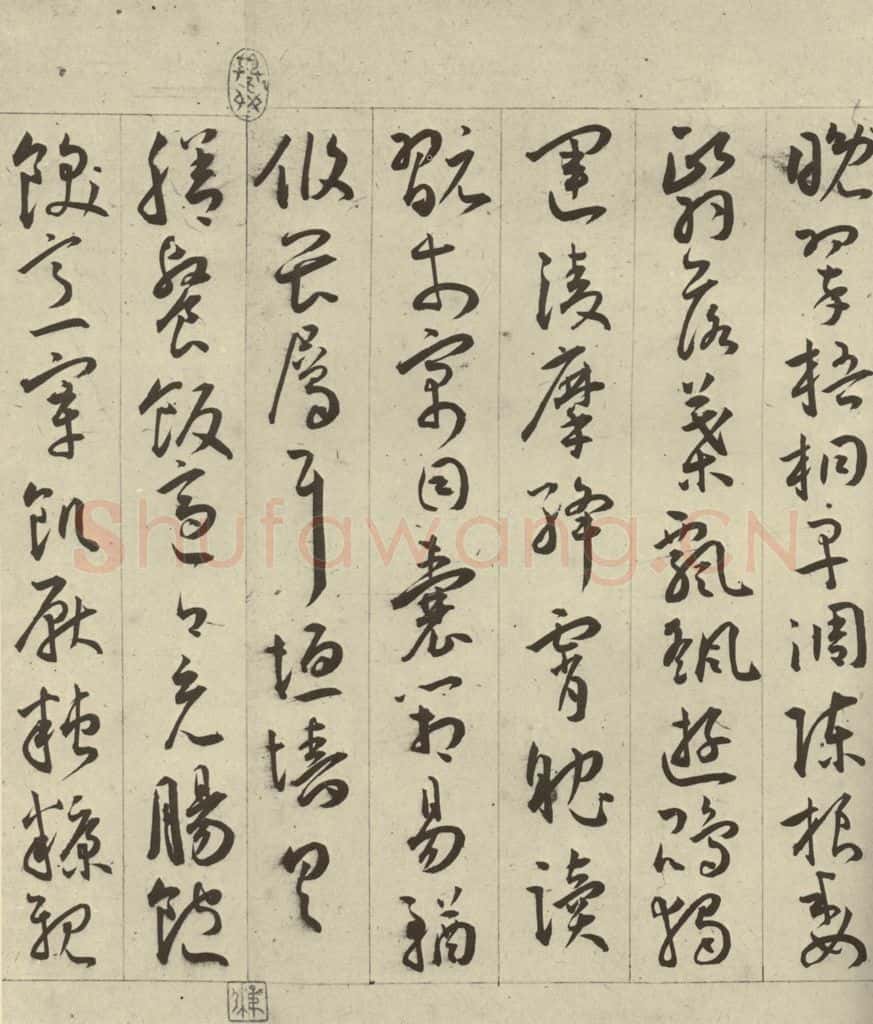 晚翠梧桐早凋陳根委
翳落葉飄颻遊鵾獨
運淩摩絳霄耽讀
翫市寓目囊箱易輶
攸畏屬耳垣墻具
膳餐飯適口充腸飽
飫享宰飢厭糟糠親
Shufawang.CN